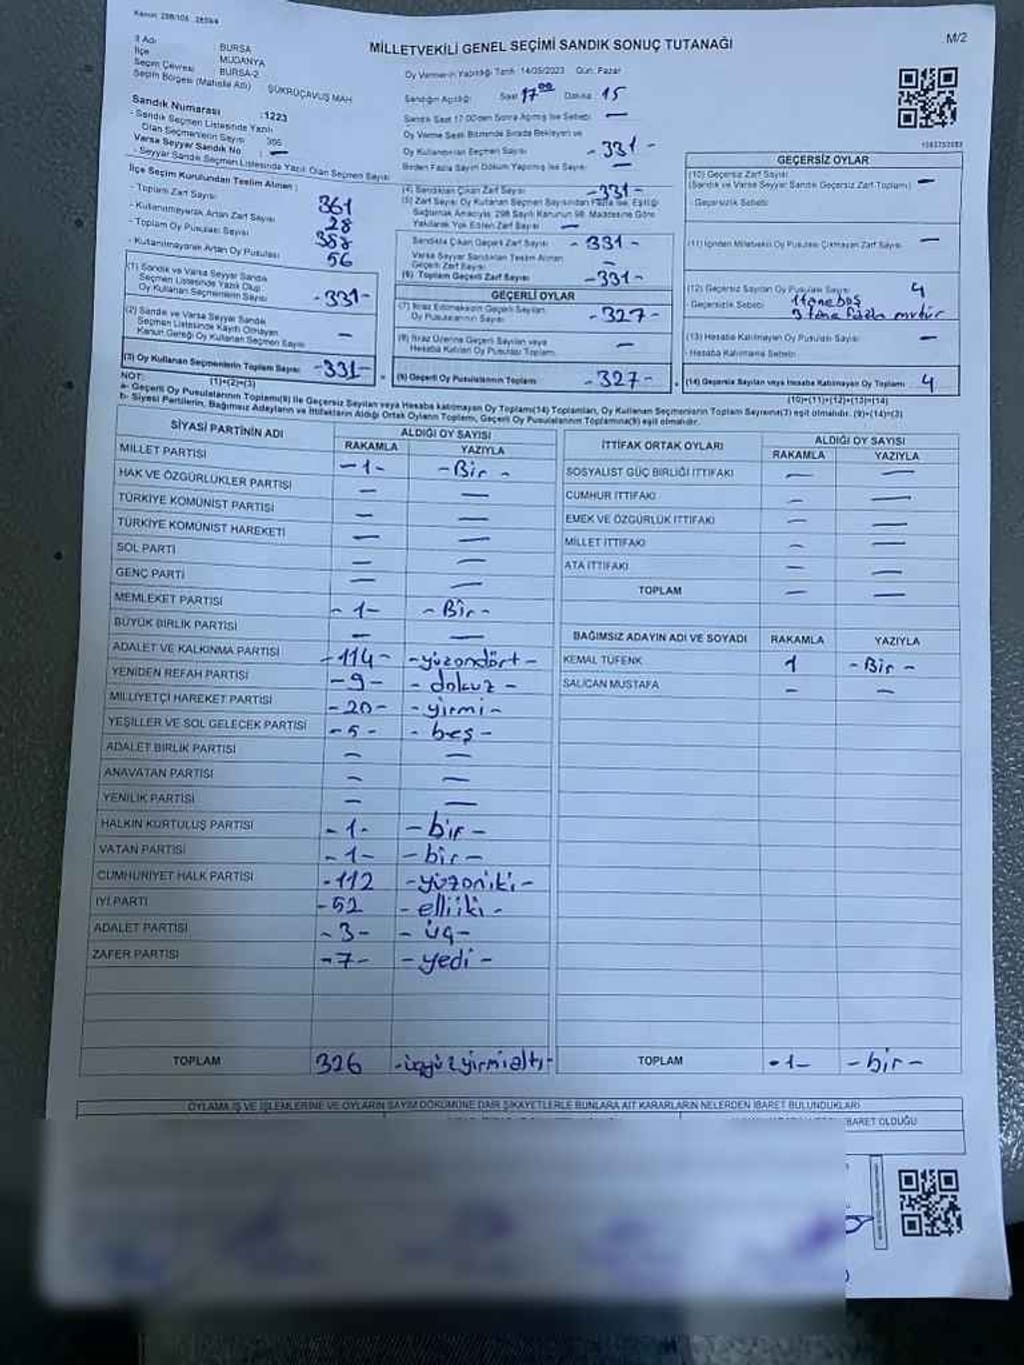 Kanun: 298/105 , 2839/4
MİLLETVEKİLİ GENEL SEÇİMİ SANDIK SONUÇ TUTANAĞI
M/2
İl Adı : BURSA
İlçe : MUDANYA
Seçim Çevresi : BURSA-2
Seçim Bölgesi (Mahalle Adı) : ŞÜKRÜÇAVUŞ MAH
Sandık Numarası : 1223
- Sandık Seçmen Listesinde Yazılı
Olan Seçmenlerin Sayısı
Varsa Seyyar Sandık No : —
- Seyyar Sandık Seçmen Listesinde Yazılı Olan Seçmen Sayısı
İlçe Seçim Kurulundan Teslim Alınan :
- Toplam Zarf Sayısı 361
- Kullanılmayarak Artan Zarf Sayısı 28
- Toplam Oy Pusulası Sayısı
- Kullanılmayarak Artan Oy Pusulası 56
(1) Sandık ve Varsa Seyyar Sandık
Seçmen Listesinde Yazılı Olup
Oy Kullanan Seçmenlerin Sayısı -331-
(2) Sandık ve Varsa Seyyar Sandık
Seçmen Listesinde Kayıtlı Olmayan
Kanun Gereği Oy Kullanan Seçmen Sayısı —
(3) Oy Kullanan Seçmenlerin Toplam Sayısı -331-
(1)+(2)=(3)
Oy Vermenin Yapıldığı Tarih :14/05/2023 Gün: Pazar
Sandığın Açıldığı Saat 17 00 Dakika 15
Sandık Saat 17.00'den Sonra Açılmış İse Sebebi —
Oy Verme Saati Bitiminde Sırada Bekleyen ve
Oy Kullandırılan Seçmen Sayısı -331-
Birden Fazla Sayım Döküm Yapılmış İse Sayısı —
(4) Sandıktan Çıkan Zarf Sayısı -331-
(5) Zarf Sayısı Oy Kullanan Seçmen Sayısından Fazla İse, Eşitliği
Sağlamak Amacıyla, 298 Sayılı Kanunun 98. Maddesine Göre
Yakılarak Yok Edilen Zarf Sayısı —
Sandıkta Çıkan Geçerli Zarf Sayısı -331-
Varsa Seyyar Sandıktan Teslim Alınan
Geçerli Zarf Sayısı —
(6) Toplam Geçerli Zarf Sayısı -331-
GEÇERLİ OYLAR
(7) İtiraz Edilmeksizin Geçerli Sayılan
Oy Pusulalarının Sayısı -327-
(8) İtiraz Üzerine Geçerli Sayılan veya
Hesaba Katılan Oy Pusulası Toplamı —
(9) Geçerli Oy Pusulalarının Toplamı -327-
GEÇERSİZ OYLAR
(10) Geçersiz Zarf Sayısı
(Sandık ve Varsa Seyyar Sandık Geçersiz Zarf Toplamı) —
- Geçersizlik Sebebi:
(11) İçinden Milletvekili Oy Pusulası Çıkmayan Zarf Sayısı —
(12) Geçersiz Sayılan Oy Pusulası Sayısı 4
- Geçersizlik Sebebi: 1 tane boş
3 tane fazla mühür
(13) Hesaba Katılmayan Oy Pusulası Sayısı —
- Hesaba Katılmama Sebebi:
(14) Geçersiz Sayılan veya Hesaba Katılmayan Oy Toplamı 4
(10)+(11)+(12)+(13)=(14)
NOT:
a- Geçerli Oy Pusulalarının Toplamı(9) ile Geçersiz Sayılan veya Hesaba katılmayan Oy Toplamı(14) Toplamları, Oy Kullanan Seçmenlerin Toplam Sayısına(3) eşit olmalıdır. (9)+(14)=(3)
b- Siyasi Partilerin, Bağımsız Adayların ve İttifakların Aldığı Ortak Oyların Toplamı, Geçerli Oy Pusulalarının Toplamına(9) eşit olmalıdır.
SİYASİ PARTİNİN ADI ALDIĞI OY SAYISI
RAKAMLA YAZIYLA
MİLLET PARTİSİ -1- -Bir-
HAK VE ÖZGÜRLÜKLER PARTİSİ — —
TÜRKİYE KOMÜNİST PARTİSİ — —
TÜRKİYE KOMÜNİST HAREKETİ — —
SOL PARTİ — —
GENÇ PARTİ — —
MEMLEKET PARTİSİ -1- -Bir-
BÜYÜK BİRLİK PARTİSİ — —
ADALET VE KALKINMA PARTİSİ -114- -yüzondört-
YENİDEN REFAH PARTİSİ -9- -dokuz-
MİLLİYETÇİ HAREKET PARTİSİ -20- -yirmi-
YEŞİLLER VE SOL GELECEK PARTİSİ -5- -beş-
ADALET BİRLİK PARTİSİ — —
ANAVATAN PARTİSİ — —
YENİLİK PARTİSİ — —
HALKIN KURTULUŞ PARTİSİ -1- -bir-
VATAN PARTİSİ -1- -bir-
CUMHURİYET HALK PARTİSİ -112 -yüzoniki-
İYİ PARTİ -52 -elliiki-
ADALET PARTİSİ -3- -üç-
ZAFER PARTİSİ -7- -yedi-
TOPLAM 326 -üçyüzyirmialtı-
İTTİFAK ORTAK OYLARI ALDIĞI OY SAYISI
RAKAMLA YAZIYLA
SOSYALİST GÜÇ BİRLİĞİ İTTİFAKI — —
CUMHUR İTTİFAKI — —
EMEK VE ÖZGÜRLÜK İTTİFAKI — —
MİLLET İTTİFAKI — —
ATA İTTİFAKI — —
TOPLAM — —
BAĞIMSIZ ADAYIN ADI VE SOYADI RAKAMLA YAZIYLA
KEMAL TÜFENK 1 -Bir-
SALİCAN MUSTAFA — —
TOPLAM -1- -bir-
OYLAMA İŞ VE İŞLEMLERİNE VE OYLARIN SAYIM DÖKÜMÜNE DAİR ŞİKAYETLERLE BUNLARA AİT KARARLARIN NELERDEN İBARET BULUNDUKLARI
BARET OLDUĞU